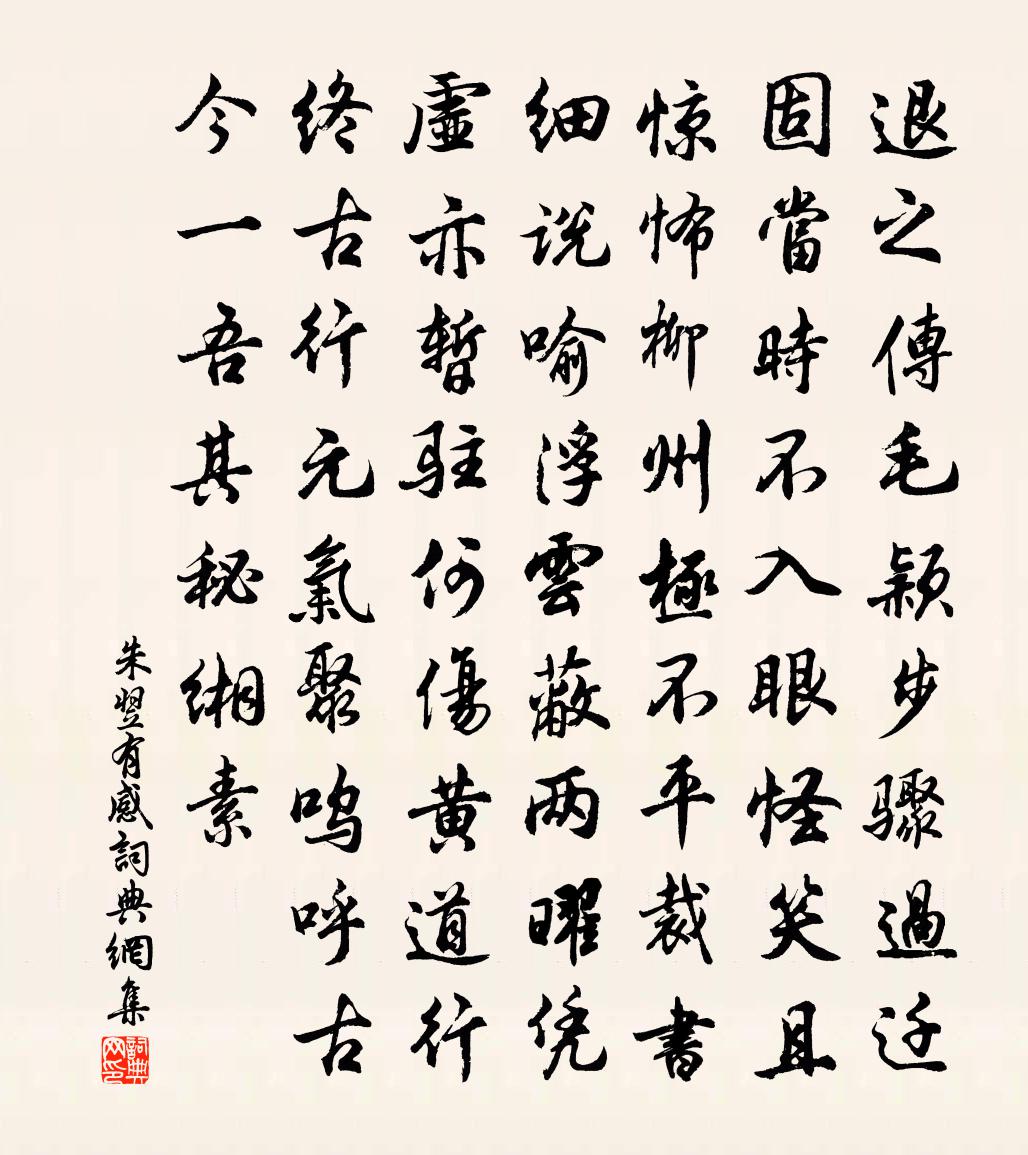 退之傳毛穎步驟過迁
固當時不入眼怪笑且
惊怖柳州極不平裁書
细说喻浮雲蔽两曜凭
虛亦暫駐何傷黄道行
终古行元氣聚鸣呼古
今一吾其秘缃素
朱翌有感詞典網集
詞典网印